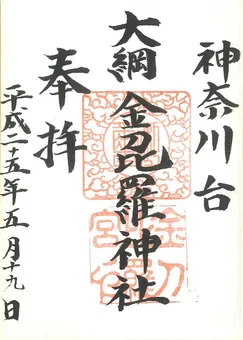 神奈川台
大綱金毘羅神社
奉拝
平成二五年五月十九日